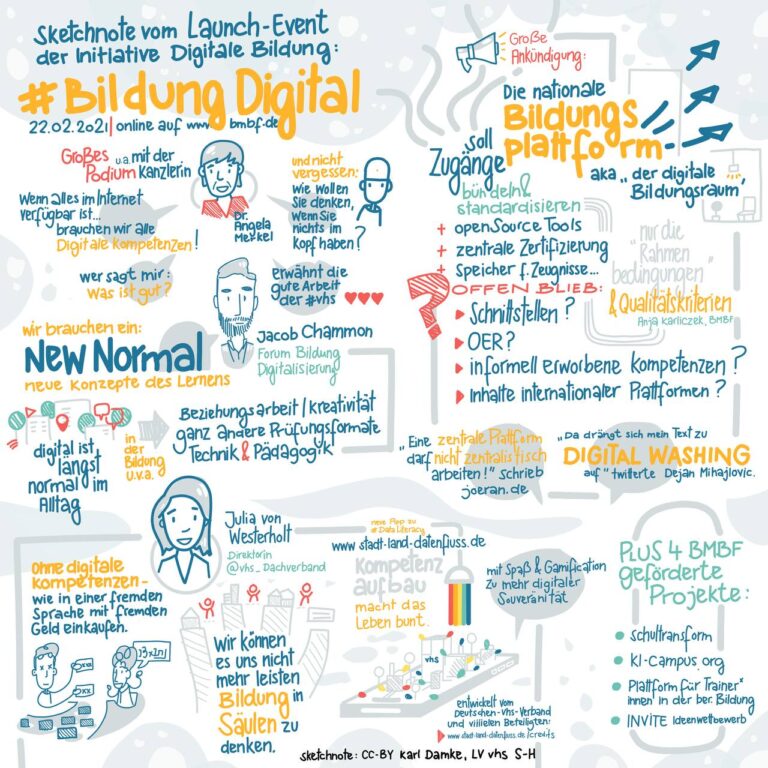 Sketchnote vom Launch-Event
der Initiative Digitale Bildung:
#Bildung Digital
22.02.2021 | online auf www.bmbf.de
Großes u.a. mit der
Podium Kanzlerin
Wenn alles im Internet
verfügbar ist...
brauchen wir alle
Digitale Kompetenzen!
Dr.
Angela
Merkel
und nicht
vergessen:
wie wollen
Sie denken,
wenn Sie
nichts im
Kopf haben?
wer sagt mir:
was ist gut?
erwähnt die
gute Arbeit
der #vhs
wir brauchen ein:
New Normal
neue Konzepte des Lernens
Jacob Chammon
Forum Bildung
Digitalisierung
digital ist
längst
normal im
Alltag
in der
Bildung
u.v.a.
Beziehungsarbeit / Kreativität
ganz andere Prüfungsformate
Technik & Pädagogik
Große
Ankündigung:
Die nationale
Bildungs
plattform
aka "der digitale
Bildungsraum"
soll
Zugänge
bündeln
standardisieren
+ openSource Tools
+ zentrale Zertifizierung
+ Speicher f. Zeugnisse...
nur die
"Rahmen
bedingungen"
& Qualitätskriterien
Anja Karliczek, BMBF
? OFFEN BLIEB:
Schnittstellen?
OER?
informell erworbene Kompetenzen?
Inhalte internationaler Plattformen?
"Eine zentrale Plattform
darf nicht zentralistisch
arbeiten!" schrieb
joeran.de
"Da drängt sich mein Text zu
DIGITAL WASHING
auf" twitterte Dejan Mihajlovic.
Julia von
Westerholt
Direktorin
@vhs_Dachverband
Ohne digitale
Kompetenzen -
wie in einer fremden
Sprache mit fremden
Geld einkaufen.
Wir können
es uns nicht
mehr leisten
Bildung in
Säulen zu
denken.
neue App zu
#Data Literacy
www.stadt-land-datenfluss.de
Kompetenz
aufbau
macht das
Leben bunt.
vhs
mit Spaß & Gamification
zu mehr digitaler
Souveränität
entwickelt vom
Deutschen-Vhs-Verband
und viiielen Beteiligten:
www.stadt-land-datenfluss.de/credits
PLUS 4 BMBF
geförderte
Projekte:
schultransform
KI-Campus.org
Plattform für Trainer*
innen in der ber. Bildung
INVITE Ideenwettbewerb
sketchnote: CC-BY Karl Damke, LV vhs S-H